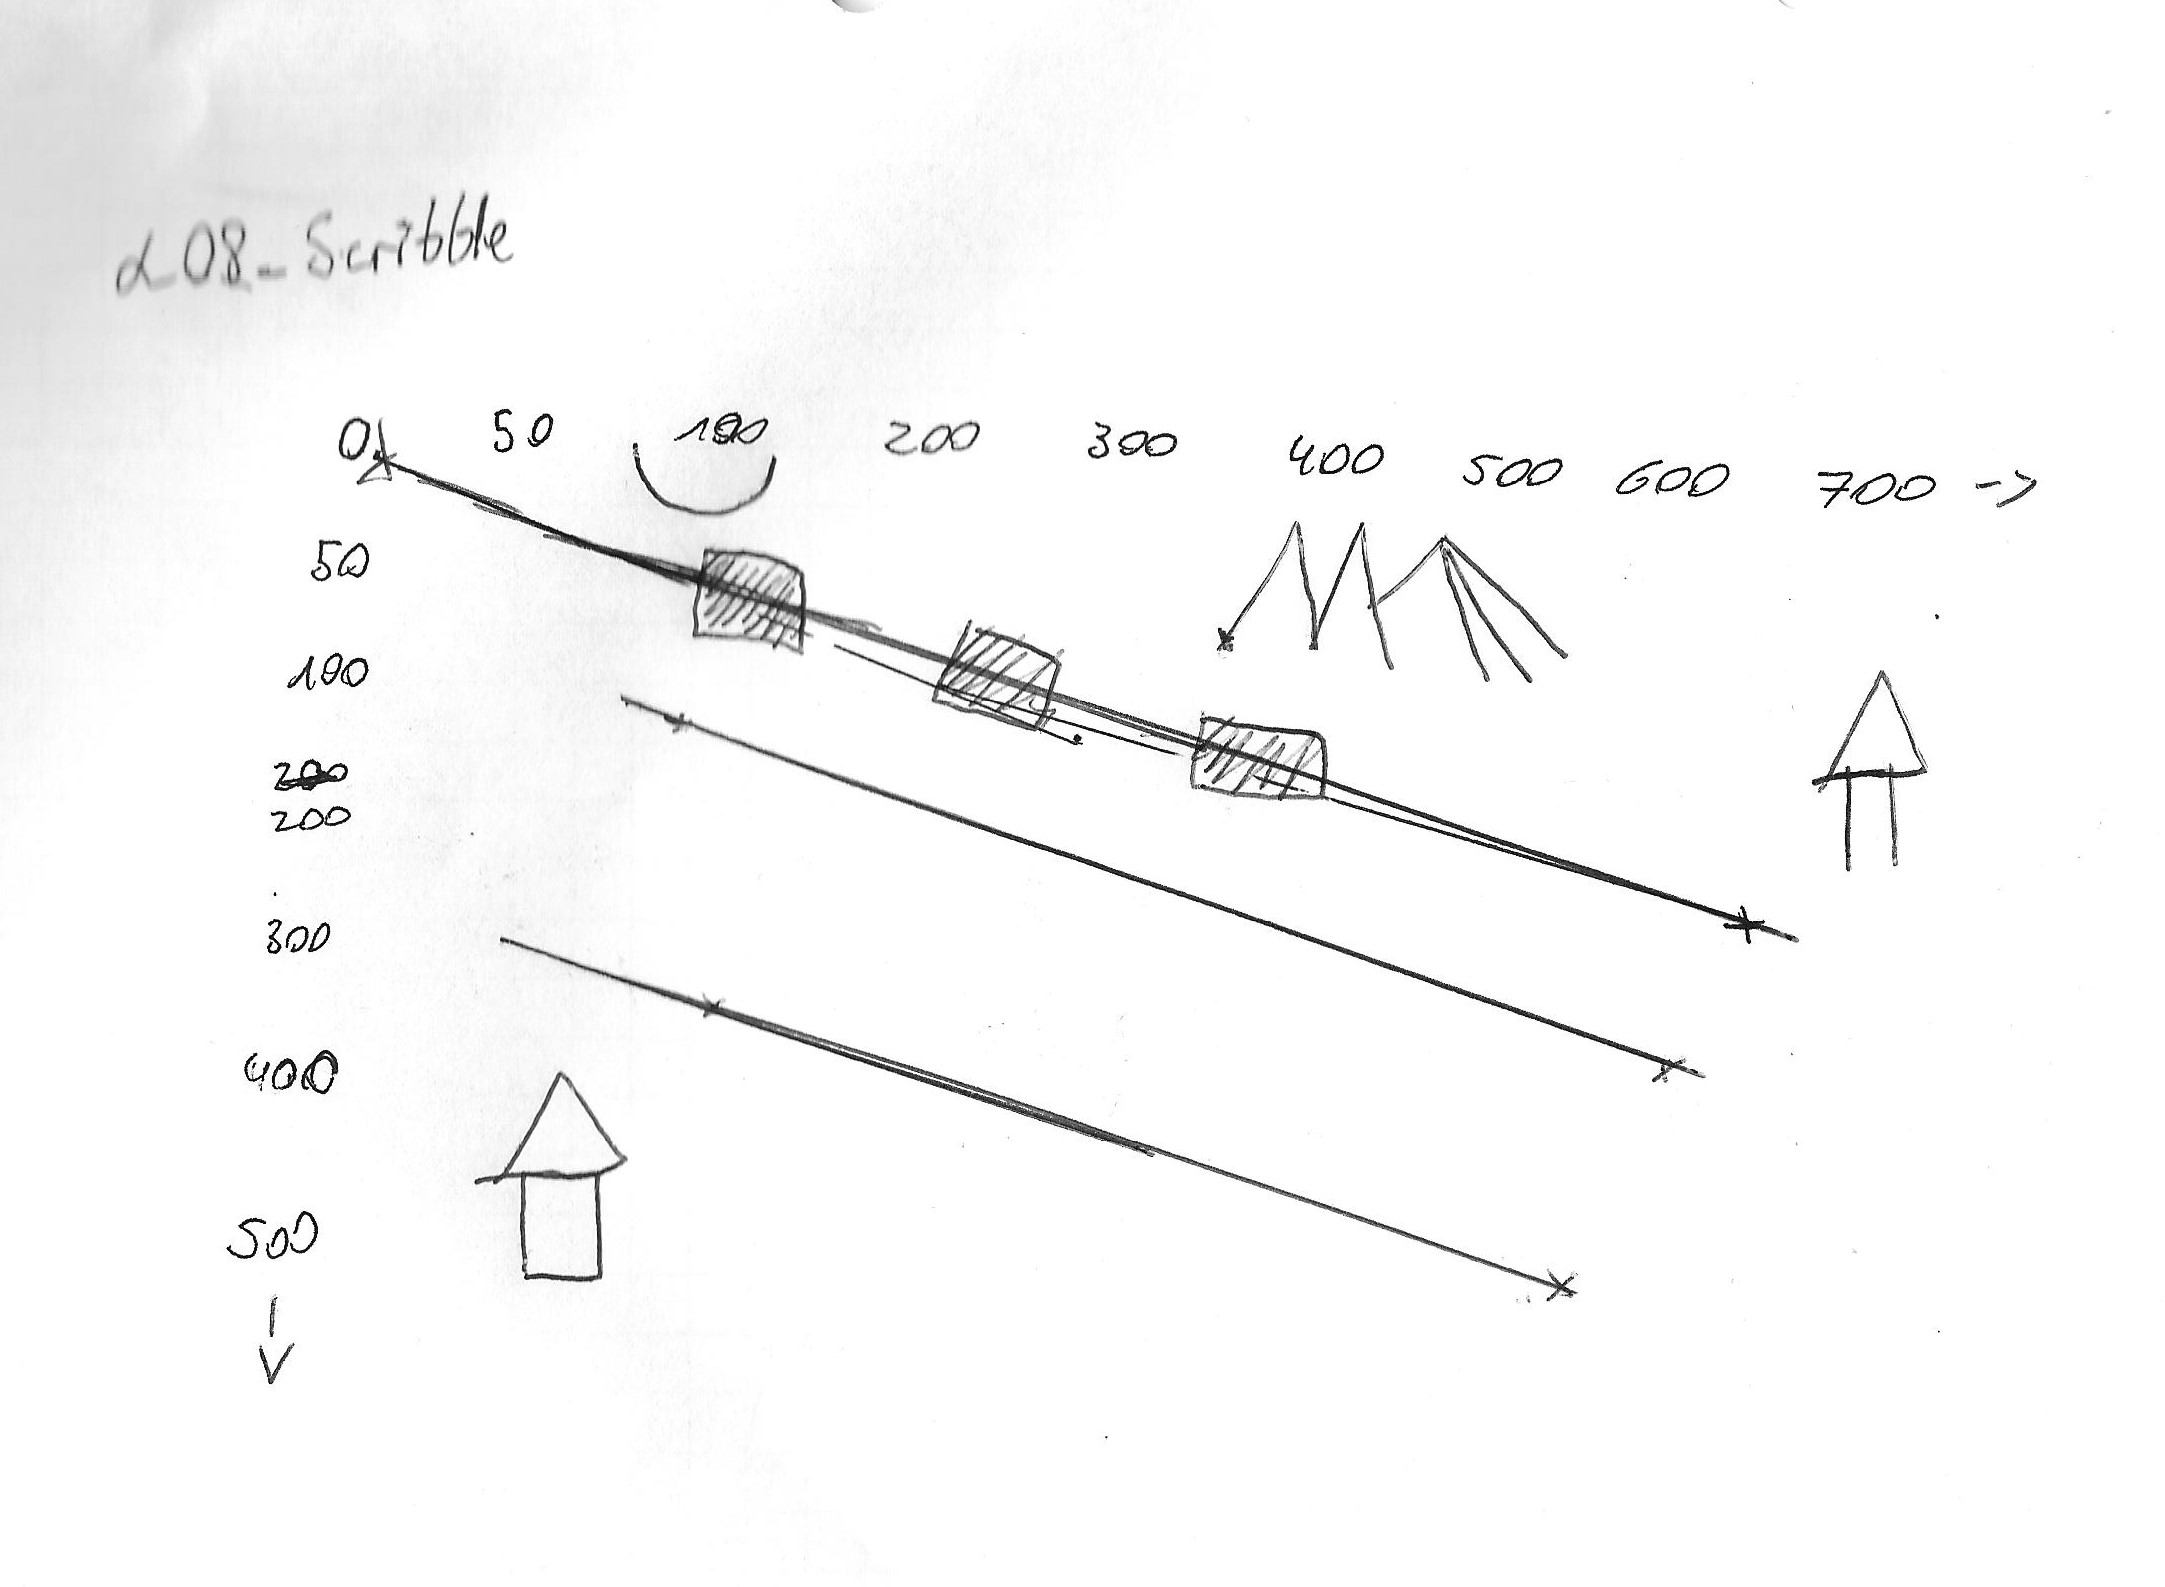 L08_Scribble
0 50 100 200 300 400 500 600 700 ->
50
100
200
200
300
400
500